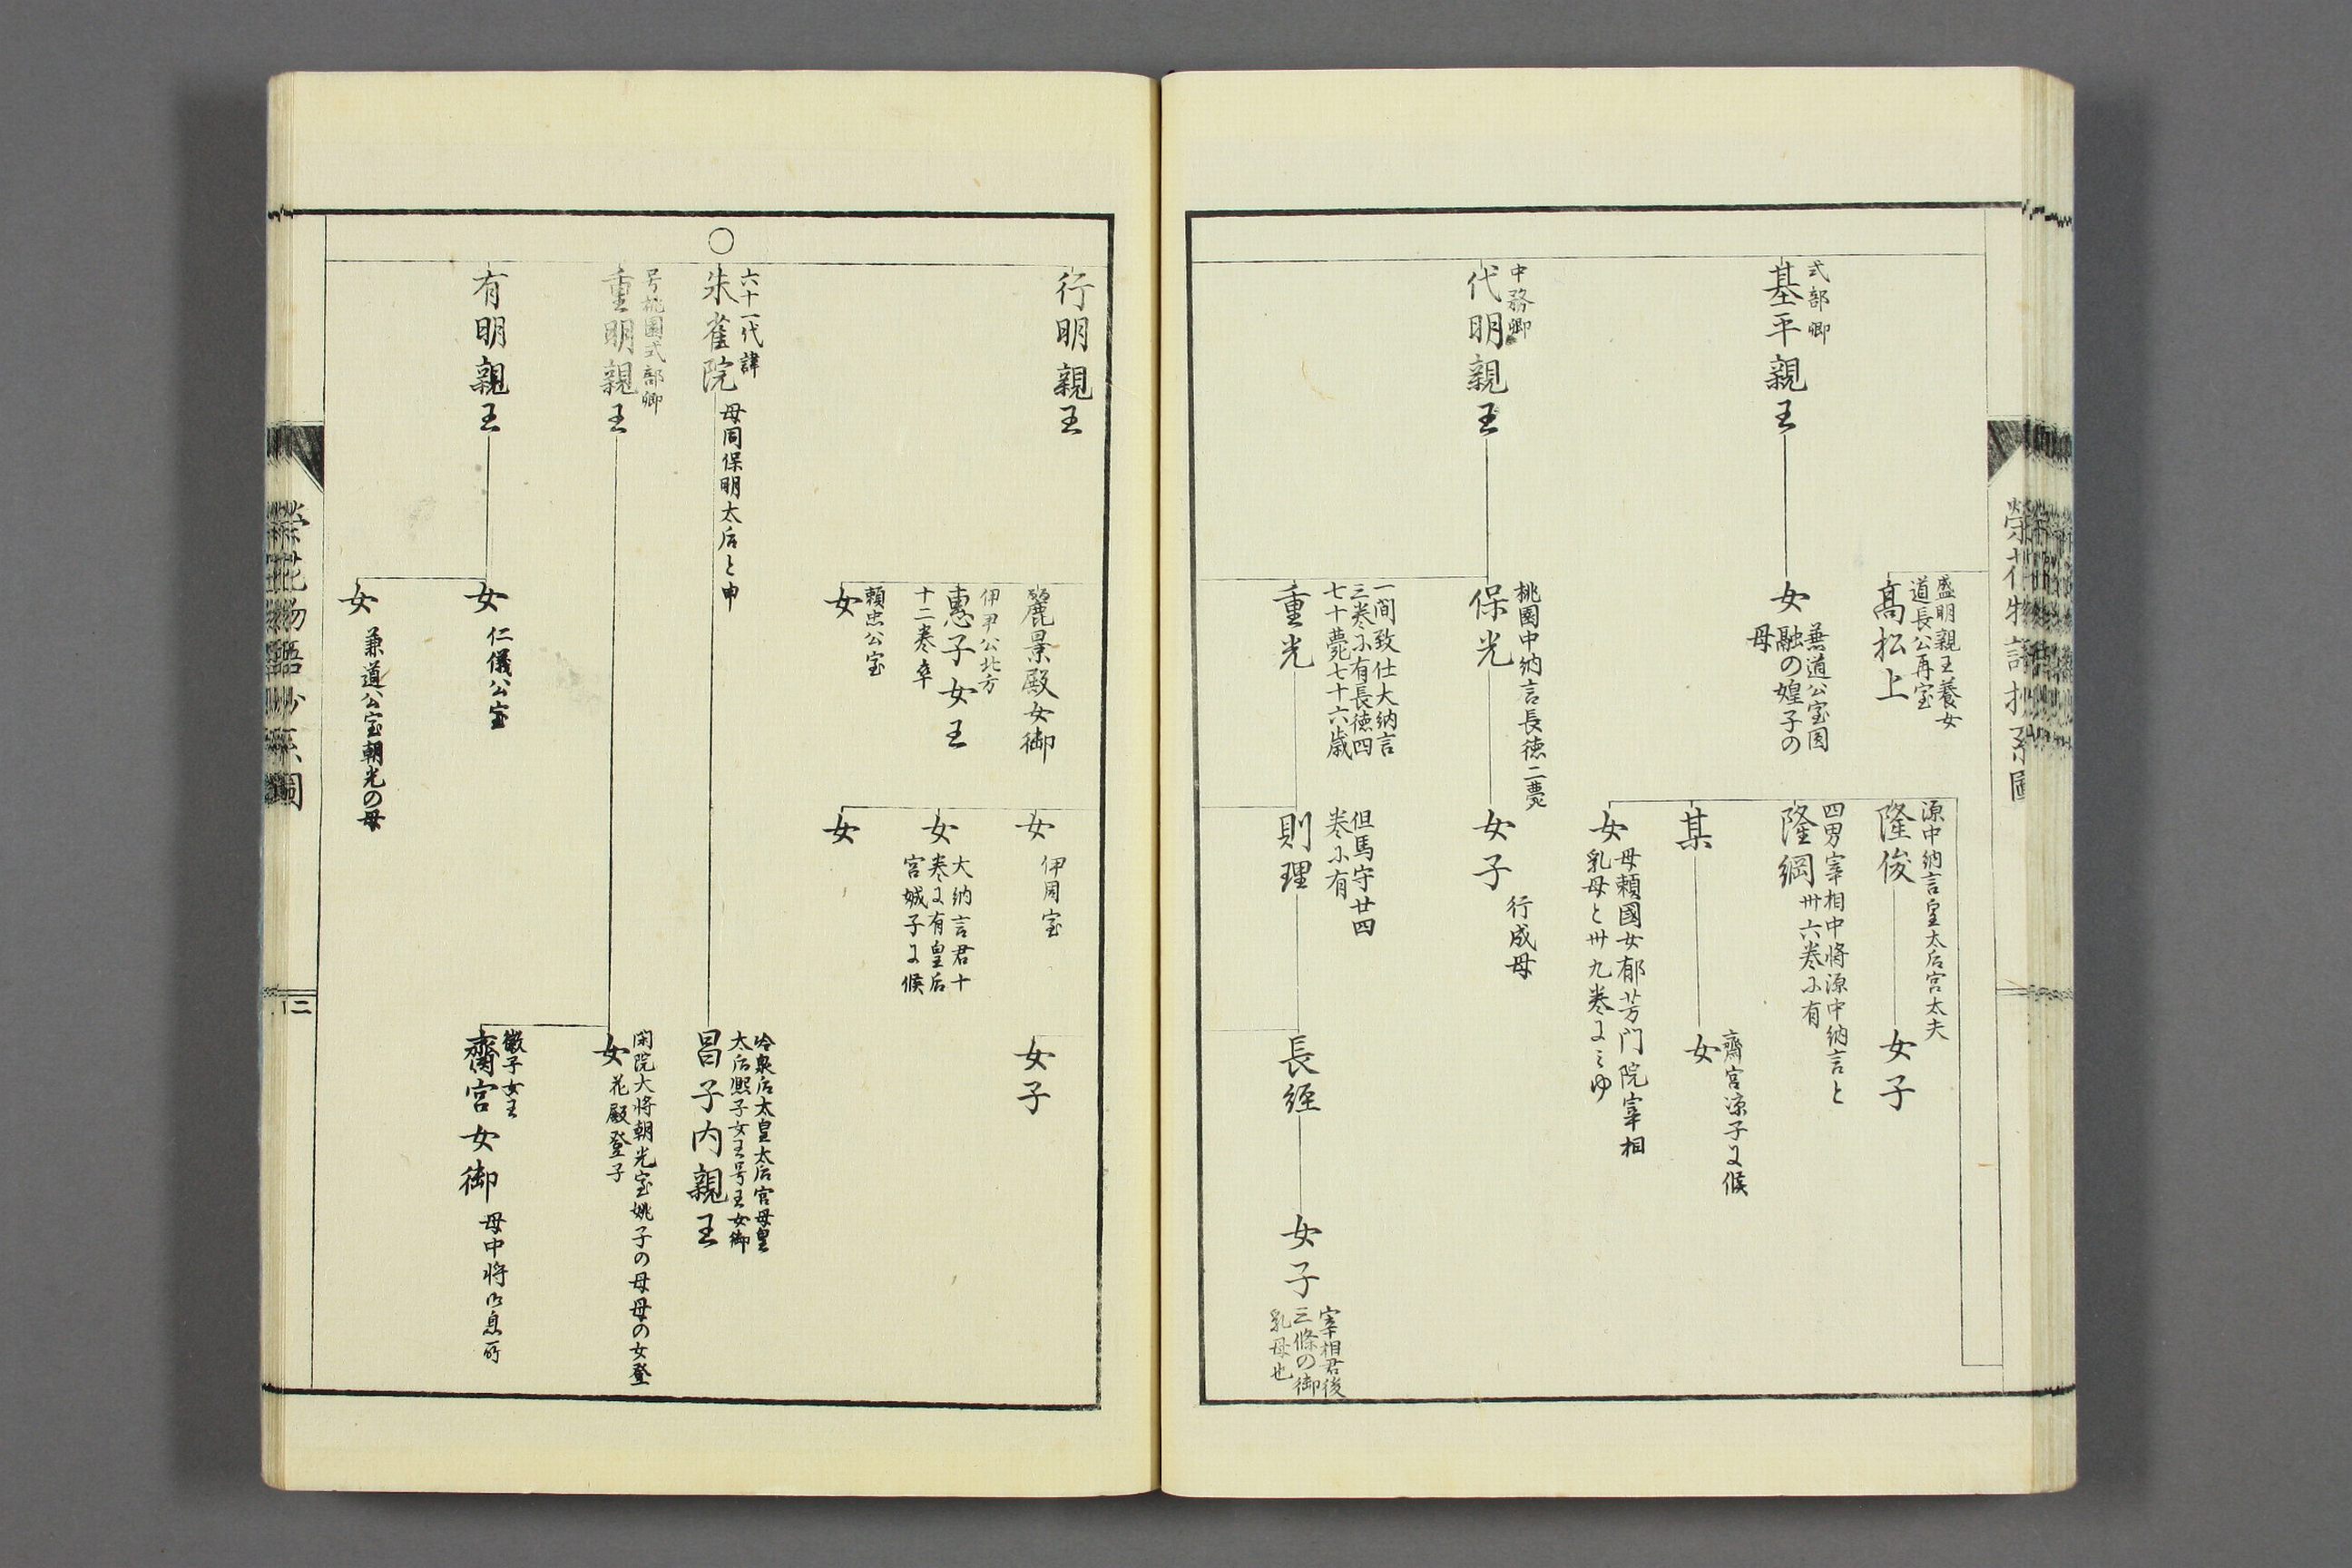 盛明親王養女
道長公再室
高松上
源中納言皇太后宮太夫
隆俊
女子
四男宰相中将源中納言と
卅六巻ニ有
隆綱
某
齋宮涼子に候
女
女
母頼國女郁芳门院宰相
乳母と卅九巻にミゆ
式部卿
基平親王
女
兼道公室圓
融の媓子の
母
中務卿
代明親王
桃園中納言長徳二薨
保光
女子
行成母
一間致仕大納言
三巻ニ有長徳四
七十薨七十六歳
重光
但馬守廿四
巻ニ有
則理
長経
女子
宰相君後
三條の御
乳母也
榮花物語抄系圖
行明親王
麗景殿女御
女
伊周室
女子
伊尹公北方
恵子女王
十二巻卒
女
大納言君十
巻に有皇后
宮娍子に候
頼忠公室
女
女
〇
六十一代諱
朱雀院
母同保明太后と申
冷泉后太皇太后宮母皇
太后熈子女王号王女御
昌子内親王
号桃園式部卿
重明親王
閑院大将朝光室姚子の母母の女登
花殿登子
女
徽子女王
齋宮女御
母中将御息所
有明親王
女
仁儀公室
女
兼道公室朝光の母
榮花物語抄系圖
二